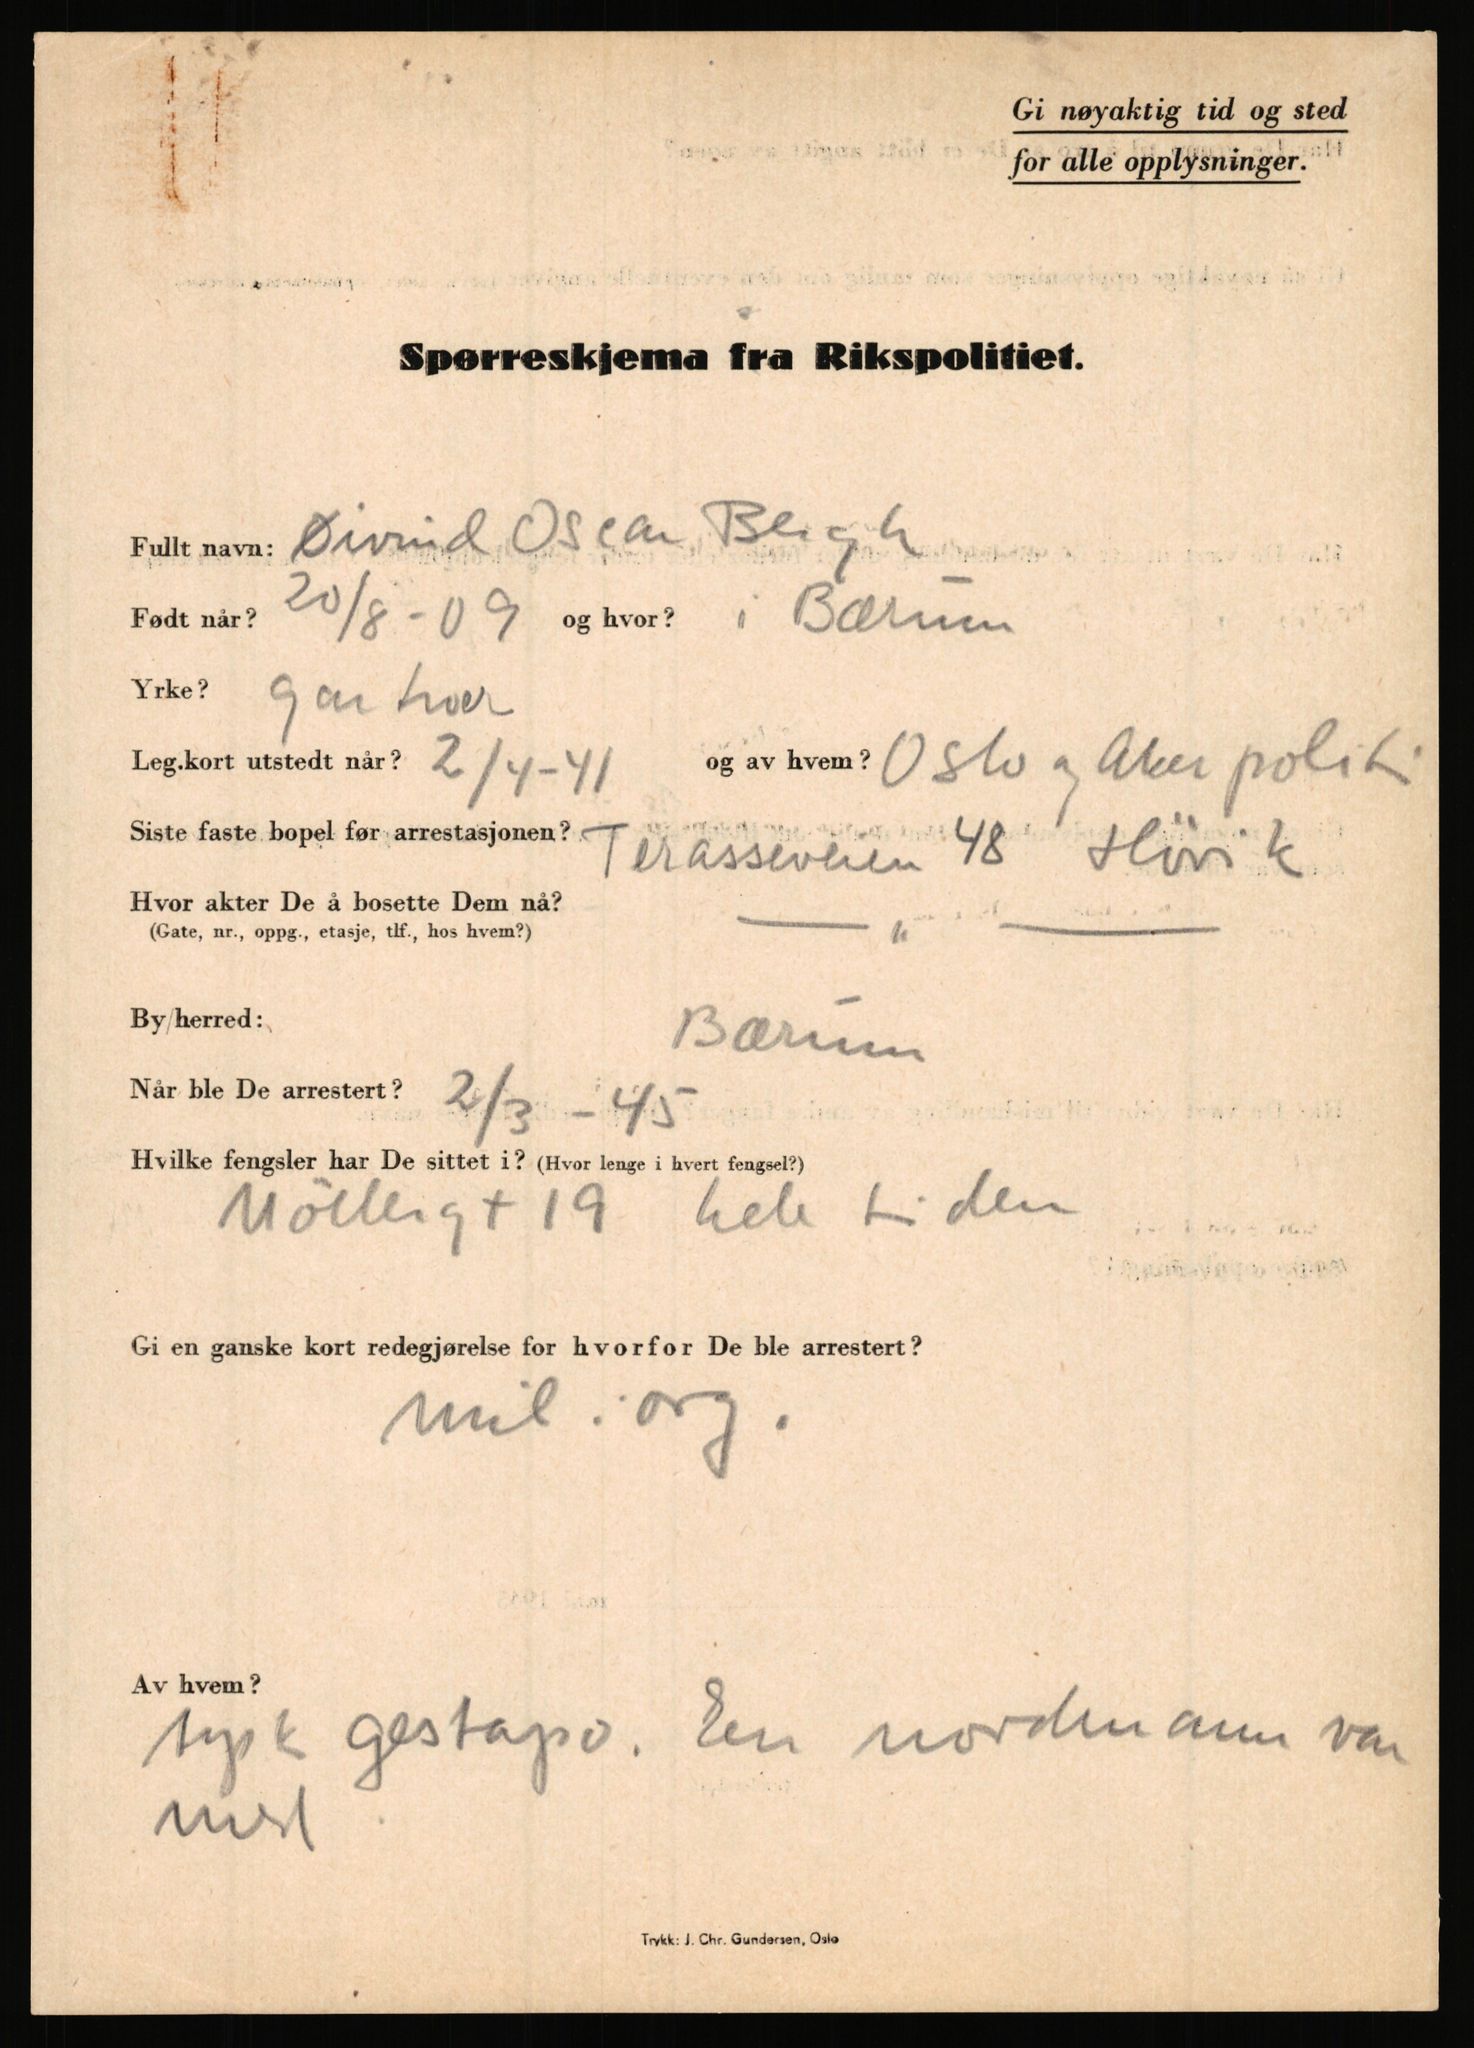 Gi nøyaktig tid og sted
for alle opplysninger.
Spørreskjema fra Rikspolitiet.
Fullt navn: Øivind Oscar Bergh
Født når? 20/8-09 og hvor? i Bærum
Yrke? gartner
Leg.kort utstedt når? 2/4-41 og av hvem? Oslo og Aker politi
Siste faste bopel før arrestasjonen? Terasseveien 48 Hövik
Hvor akter De å bosette Dem nå? — " —
(Gate, nr., oppg., etasje, tlf., hos hvem?)
By/herred: Bærum
Når ble De arrestert? 2/3-45
Hvilke fengsler har De sittet i? (Hvor lenge i hvert fengsel?)
Möllergt 19 hele tiden
Gi en ganske kort redegjørelse for hvorfor De ble arrestert?
mil. org.
Av hvem?
tysk gestapo. Een nordmann var
med
Trykk: J. Chr. Gundersen, Oslo